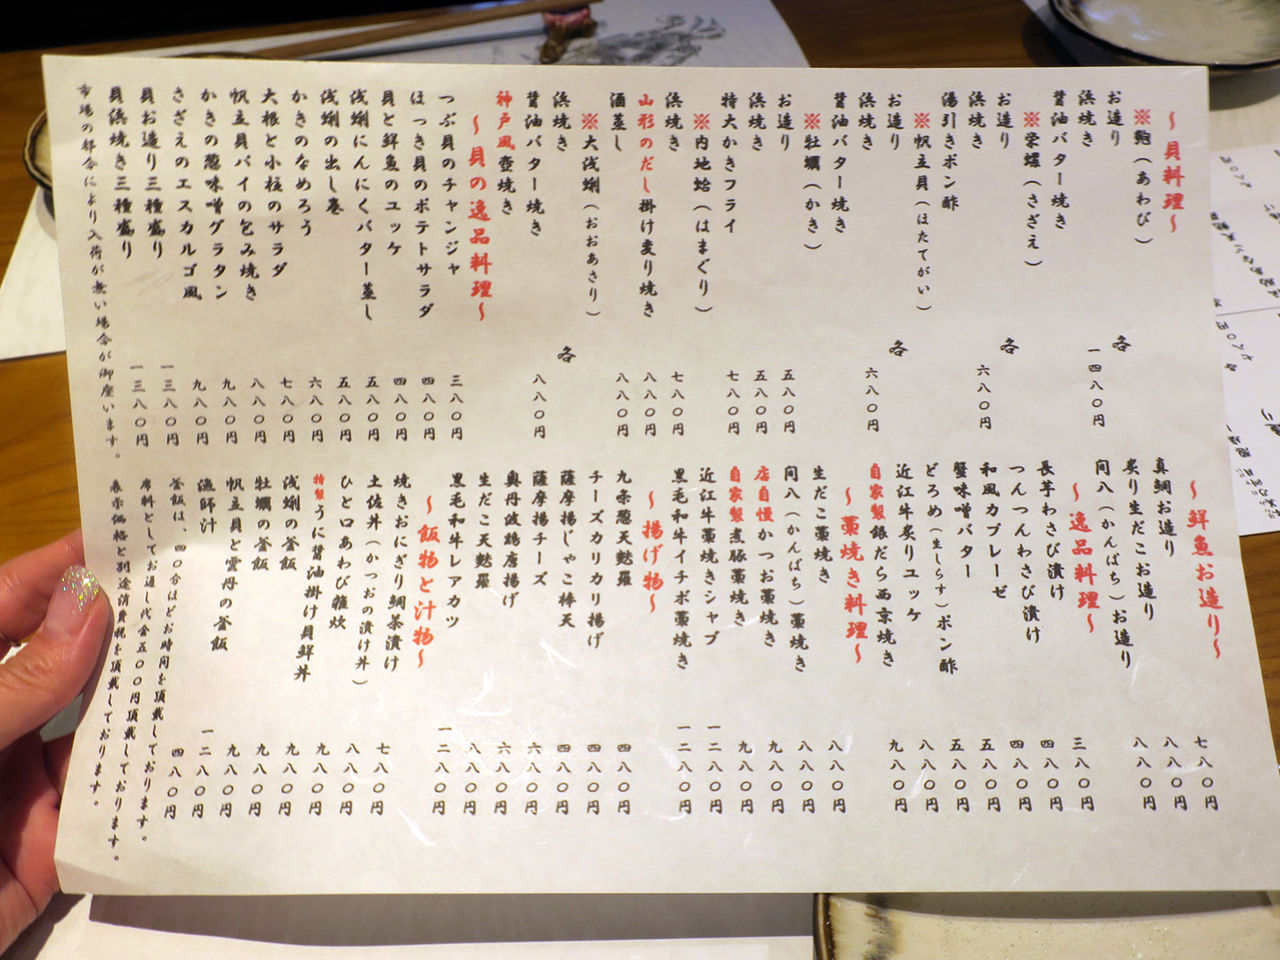 〜貝料理〜
※鮑(あわび)
お造り
浜焼き
醤油バター焼き
各 一四八〇円
※栄螺(さざえ)
お造り
浜焼き
湯引きポン酢
各 六八〇円
※帆立貝(ほたてがい)
お造り
浜焼き
醤油バター焼き
各 六八〇円
※牡蠣(かき)
お造り 五八〇円
浜焼き 五八〇円
特大かきフライ 七八〇円
※内地蛤(はまぐり)
浜焼き 七八〇円
山形のだし掛け炙り焼き 八八〇円
酒蒸し 八八〇円
※大浅蜊(おおあさり)
浜焼き
醤油バター焼き
神戸風壺焼き
各 八八〇円
〜貝の逸品料理〜
つぶ貝のチャンジャ 三八〇円
ほっき貝のポテトサラダ 四八〇円
貝と鮮魚のユッケ 四八〇円
浅蜊にんにくバター蒸し 五八〇円
浅蜊の出し巻 五八〇円
かきのなめろう 六八〇円
大根と小柱のサラダ 七八〇円
帆立貝パイの包み焼き 八八〇円
かきの葱味噌グラタン 九八〇円
さざえのエスカルゴ風 九八〇円
貝お造り三種盛り 一三八〇円
貝浜焼き三種盛り 一三八〇円
市場の都合により入荷が無い場合が御座います。
〜鮮魚お造り〜
真鯛お造り 七八〇円
炙り生だこお造り 八八〇円
間八(かんぱち)お造り 八八〇円
〜逸品料理〜
長芋わさび漬け 三八〇円
つんつんわさび漬け 四八〇円
和風カプレーゼ 四八〇円
蟹味噌バター 五八〇円
どろめ(生しらす)ポン酢 五八〇円
近江牛炙りユッケ 八八〇円
自家製銀だら西京焼き 九八〇円
〜藁焼き料理〜
生だこ藁焼き 八八〇円
間八(かんぱち)藁焼き 八八〇円
店自慢かつお藁焼き 九八〇円
自家製煮豚藁焼き 九八〇円
近江牛藁焼きシャブ 一二八〇円
黒毛和牛イチボ藁焼き 一二八〇円
〜揚げ物〜
九条葱天麩羅 四八〇円
チーズカリカリ揚げ 四八〇円
薩摩揚じゃこ棒天 四八〇円
薩摩揚チーズ 六八〇円
奥丹波鶏唐揚げ 六八〇円
生だこ天麩羅 八八〇円
黒毛和牛レアカツ 一二八〇円
〜飯物と汁物〜
焼きおにぎり鯛茶漬け 七八〇円
土佐丼(かつおの漬け丼) 八八〇円
ひと口あわび雑炊 九八〇円
特製うに醤油掛け貝鮮丼 九八〇円
浅蜊の釜飯 九八〇円
牡蠣の釜飯 九八〇円
帆立貝と雲丹の釜飯 一二八〇円
漁師汁 四八〇円
釜飯は、四〇分ほどお時間を頂載しております。
席料としてお通し代金五〇〇円頂載しております。
表示価格と別途消費税を頂載しております。